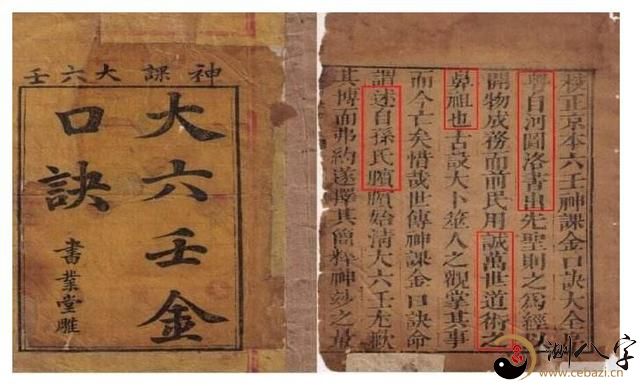 神課大六壬
大六壬金
口訣
書業堂雕
校正京本六壬神課金口訣大全
粵自河圖洛書出先聖則之為經以
開物成務而前民用誠萬世道術之
鼻祖也古設大卜筮人之觀掌其事
而今亡矣惜哉世傳神課金口訣命
謂述自孫氏臏臏始清大六壬尤歉
其博而弗約遂擇其簡粹神妙之最
測八字
www.cebazi.cn